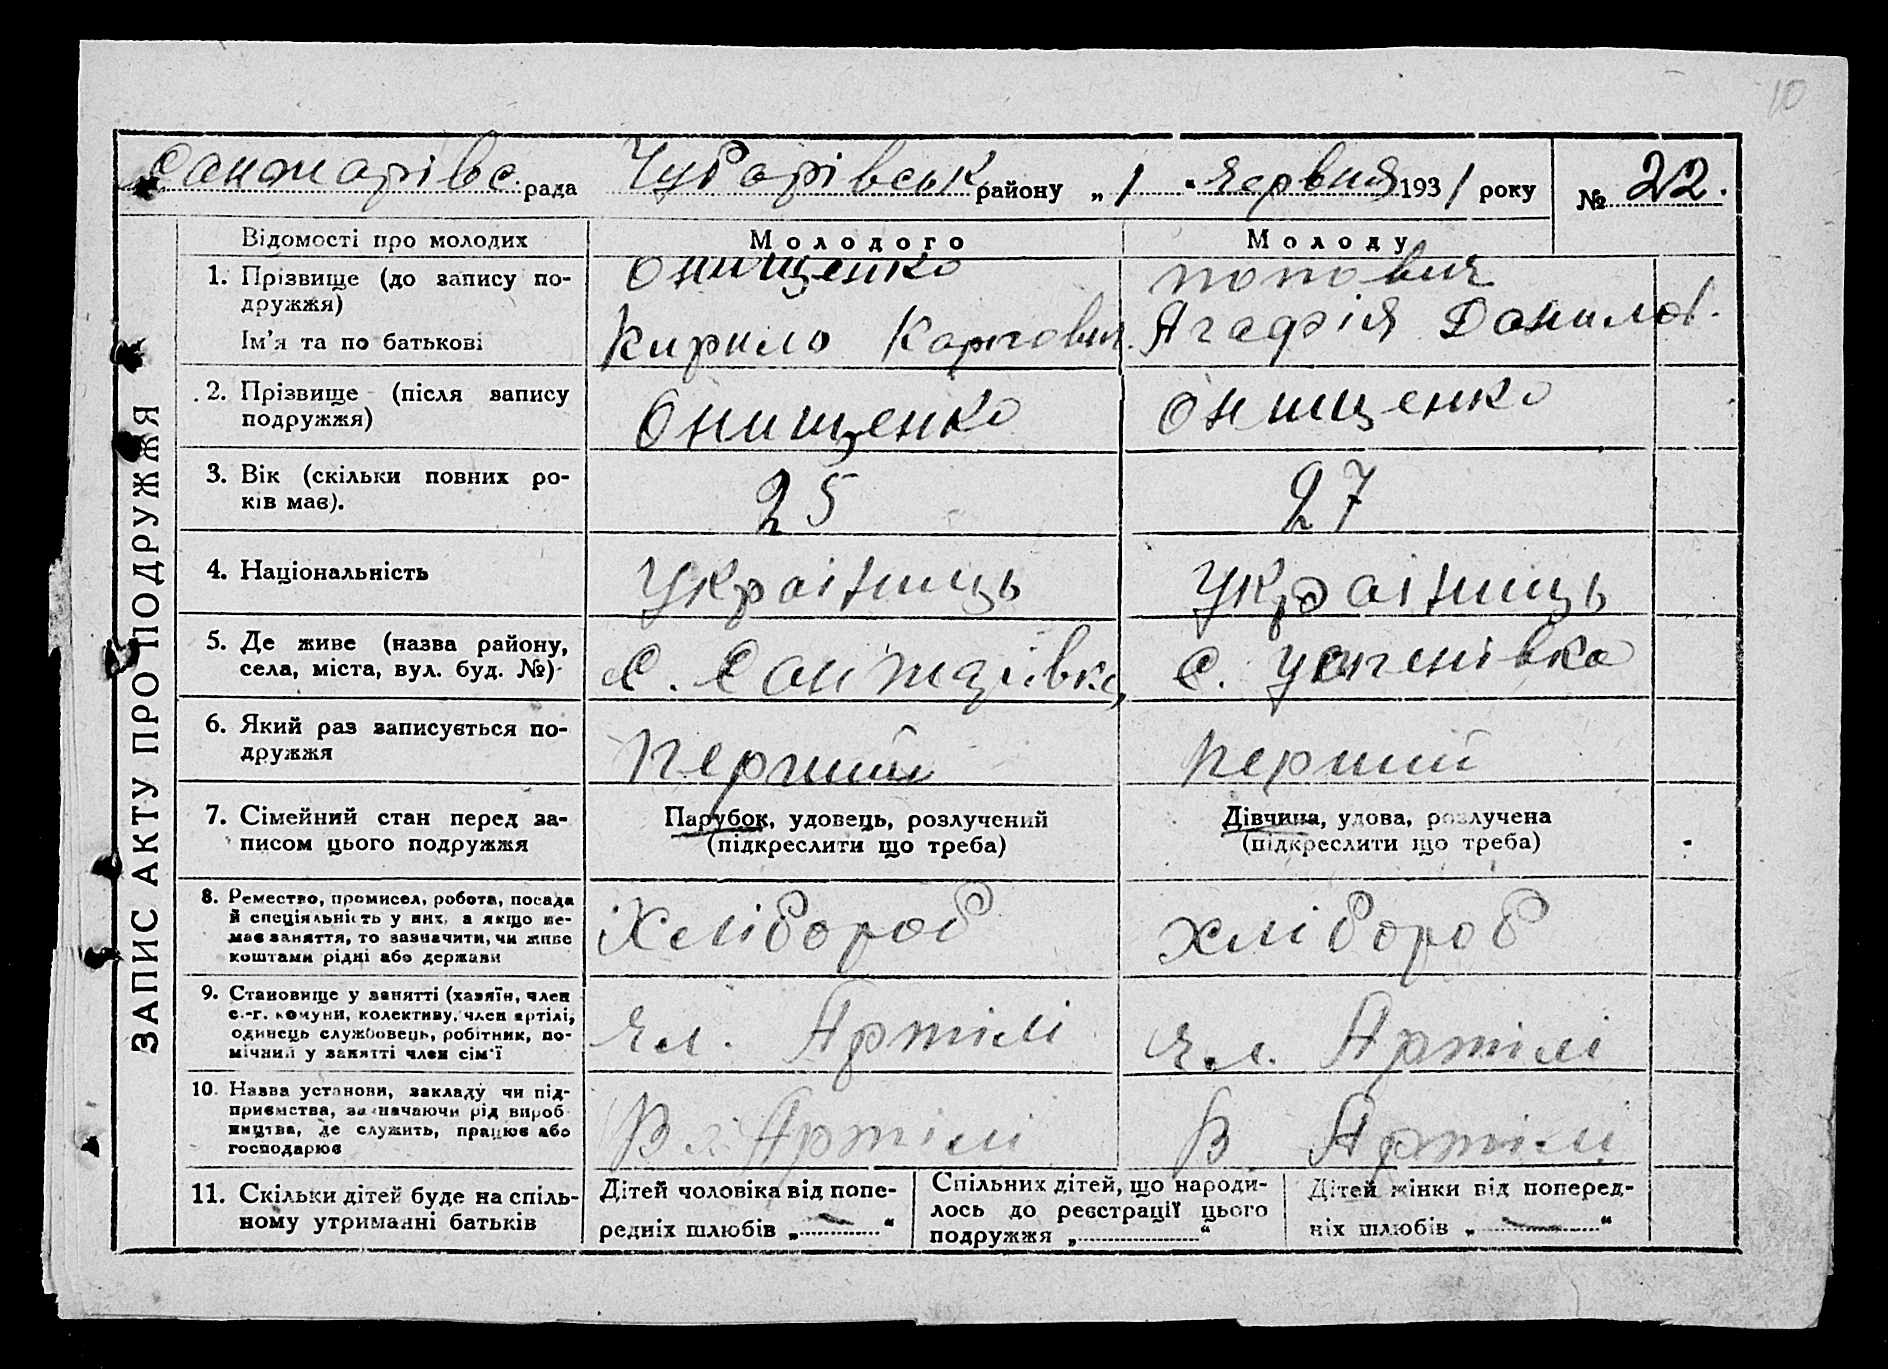 10
Санжарівс. рада Чубарівськ району „1“ червня 1931 року № 22.
ЗАПИС АКТУ ПРО ПОДРУЖЖЯ
Відомості про молодих Молодого Молоду
1. Прізвище (до запису по- Онищенко Попович
дружжя)
Ім'я та по батькові Кирило Карпович. Агафія Данилов.
2. Прізвище (після запису Онищенко Онищенко
подружжя)
3. Вік (скільки повних ро- 25 27
ків має).
4. Національність Украіниць Украіниць
5. Де живе (назва району, с. Санжарівка с. Успенівка
села, міста, вул. буд. №)
6. Який раз записується по- Перший Перший
дружжя
7. Сімейний стан перед за- Парубок, удовець, розлучений Дівчина, удова, розлучена
писом цього подружжя (підкреслити що треба) (підкреслити що треба)
8. Ремество, промисел, робота, посада Хлібороб Хлібороб
й спеціяльність у них, а якщо не-
має заняття, то зазначити, чи живе
коштами рідні або держави
9. Становище у занятті (хазяїн, член чл. Артілі чл. Артілі
с.-г. комуни, колективу, член артілі,
одинець службовець, робітник, по-
мічний у занятті член сім'ї
10. Назва установи, закладу чи під- В Артілі В Артілі
приємства, зазначаючи рід вироб
ництва, де служить, працює або
господарює
11. Скільки дітей буде на спіль-
ному утриманні батьків
Дітей чоловіка від попе-
редніх шлюбів „—“
Спільних дітей, що народи-
лось до реєстрації цього
подружжя „ “
Дітей жінки від поперед-
ніх шлюбів „—“